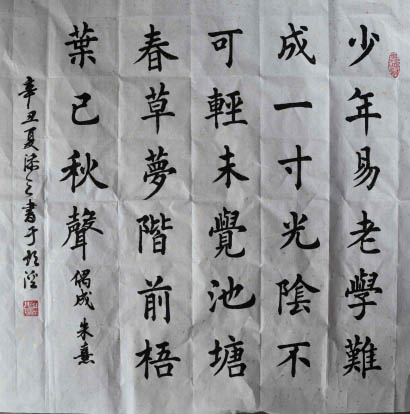 少年易老學難
成一寸光陰不
可輕未覺池塘
春草夢階前梧
葉已秋聲
偶成朱熹
辛丑夏
書于